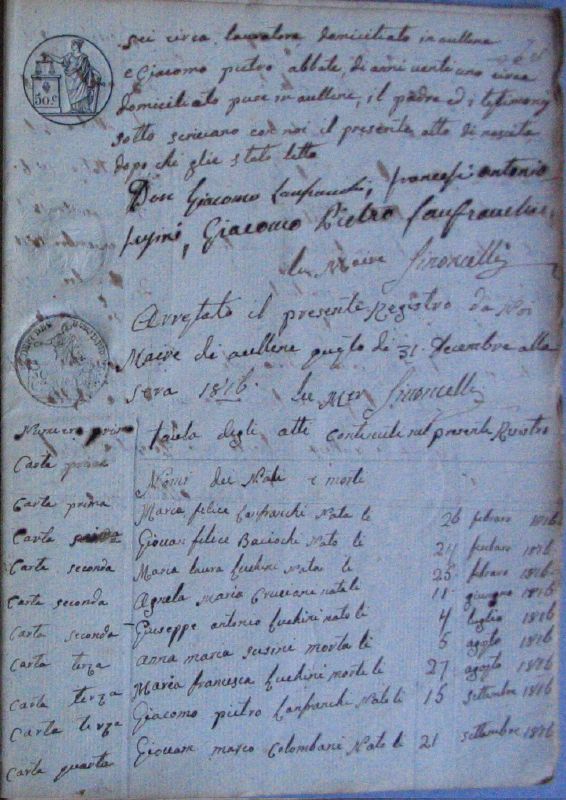 50 c
sei circa lavoratore domiciliato in aullene
e Giacomo pietro abbate, di anni venti uno circa
domiciliato pure in aullene, il padre ed i testimonj
sotto scrivano con noi il presente atto di nascita
dopo che glie stato letto
Don Giacomo Lanfranchi, francesco antonio
, Giacomo Pietro Lanfranchi,
Le Maire Simoncelli
Arrestato il presente Registro da Noi
Maire di aullene questo di 31 Decembre alla
sera 1816. Le Mer Simoncelli
Numero primo tavola degli atti contenuti nel presente Registro
Carta prima Nomi dei Nati e morti
Carta prima Maria felice Lanfranchi Nata li 26 febraro 1816
Carta Giovan felice Baciochi Nato li 24 febraro 1816
Carta seconda Maria laura Nata li 25 febraro 1816
Carta seconda Agnela Maria nata li 11 giugno 1816
Carta seconda Giuseppe antonio nato li 4 luglio 1816
Carta terza anna maria susini morta li 5 agosto 1816
Carta terza Maria francesca morta li 27 agosto 1816
Carta terza Giacomo pietro Lanfranchi Nato li 15 settembre 1816
Carta quarta Giovan marco Colombani Nato li 21 settembre 1816